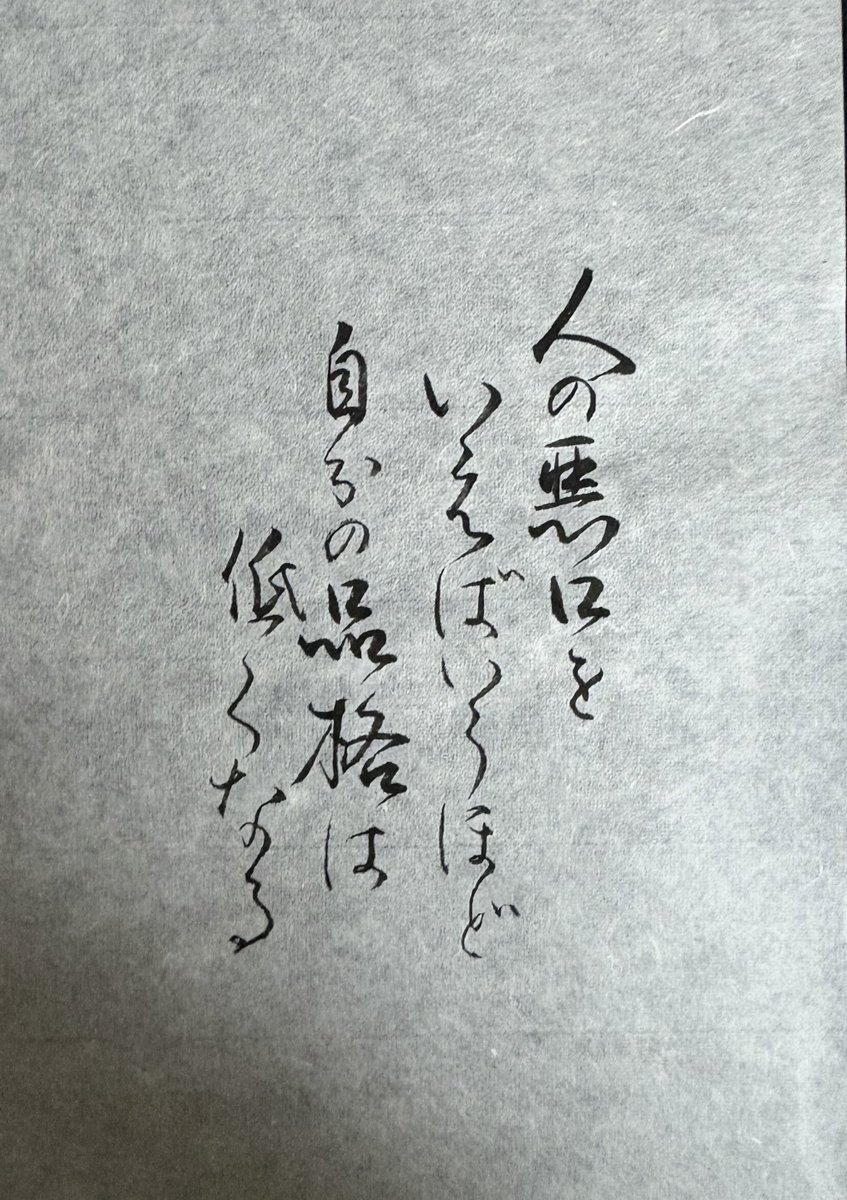 人の悪口を
いえばいうほど
自分の品格は
低くなる